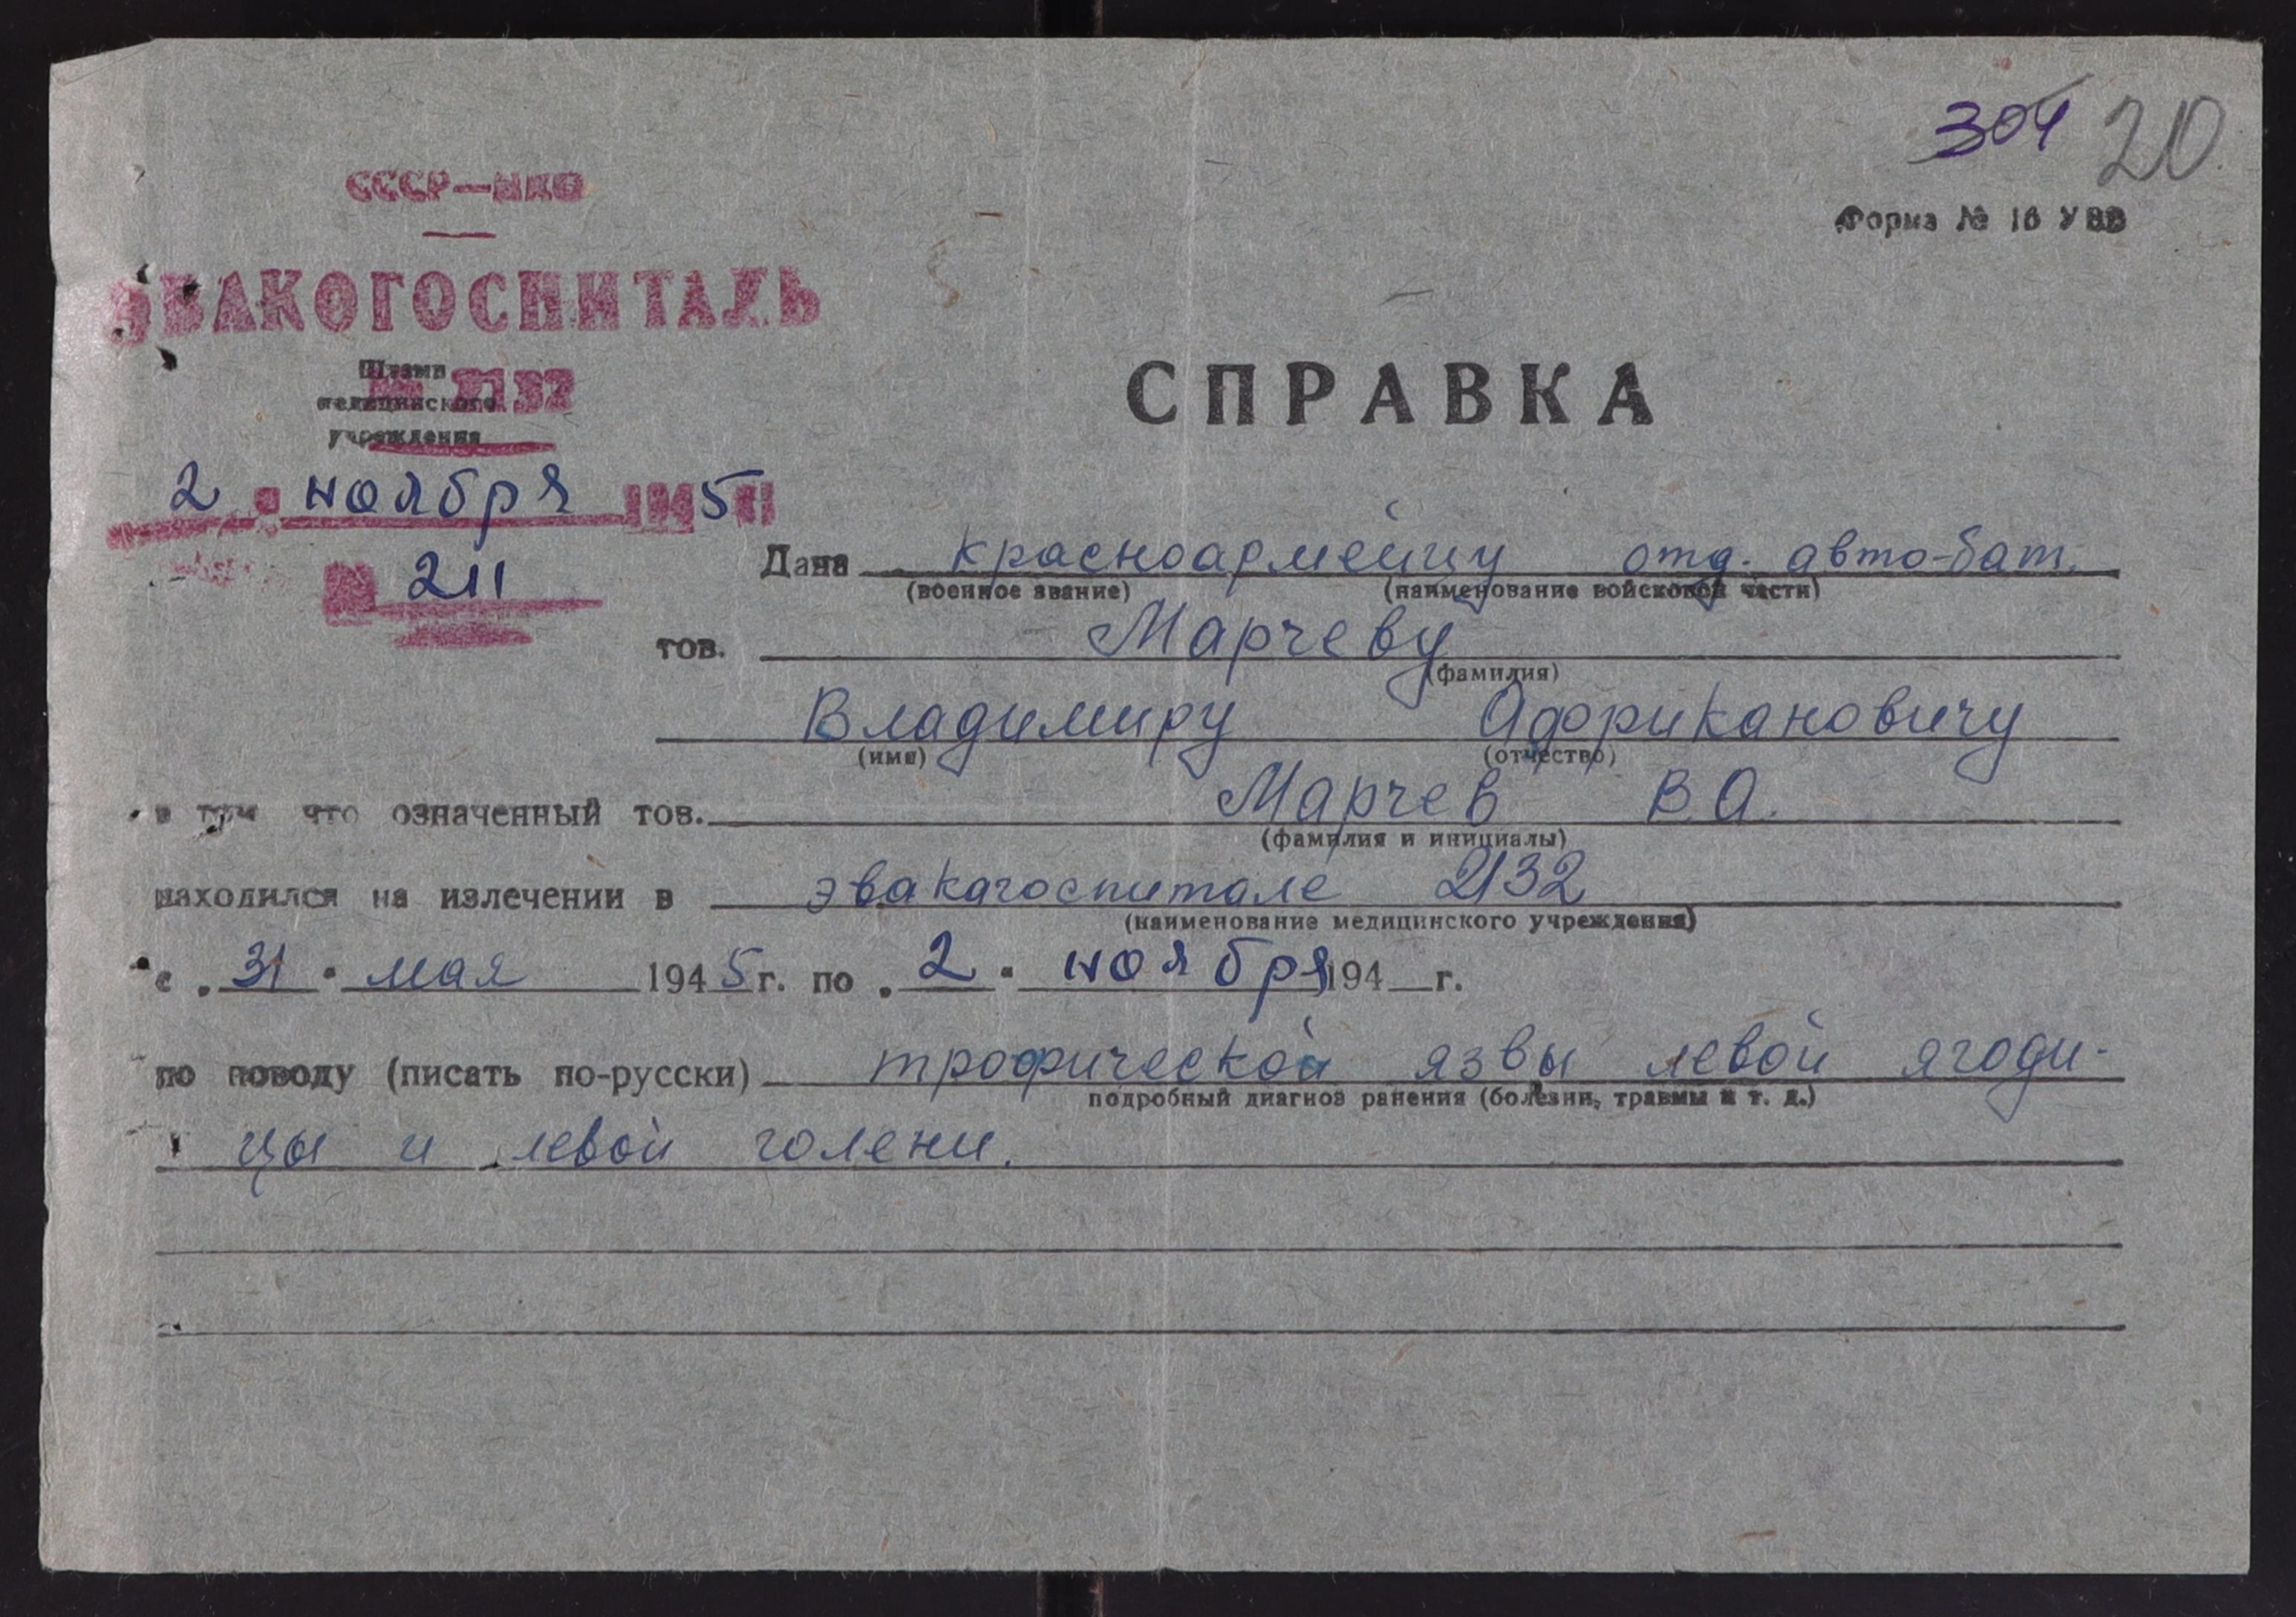 304 20
Форма № 16 УВВ
СССР—НКО
ЭВАКОГОСПИТАЛЬ
№ 2132
Штамп
медицинского
учреждения
СПРАВКА
2 ноября 1945 г.
№ 211
Дана красноармейцу отд. авто-бат.
(военное звание) (наименование войсковой части)
тов. Марчеву
(фамилия)
Владимиру Адорикановичу
(имя) (отчество)
в том что означенный тов. Марчев В А.
(фамилия и инициалы)
находился на излечении в эвакагоспитале 2132
(наименование медицинского учреждения)
с „31“ мая 1945 г. по „2“ ноября 194 г.
по поводу (писать по-русски) трофической язвы левой ягоди-
подробный диагноз ранения (болезни, травмы и т. д.)
цы и левой голени.